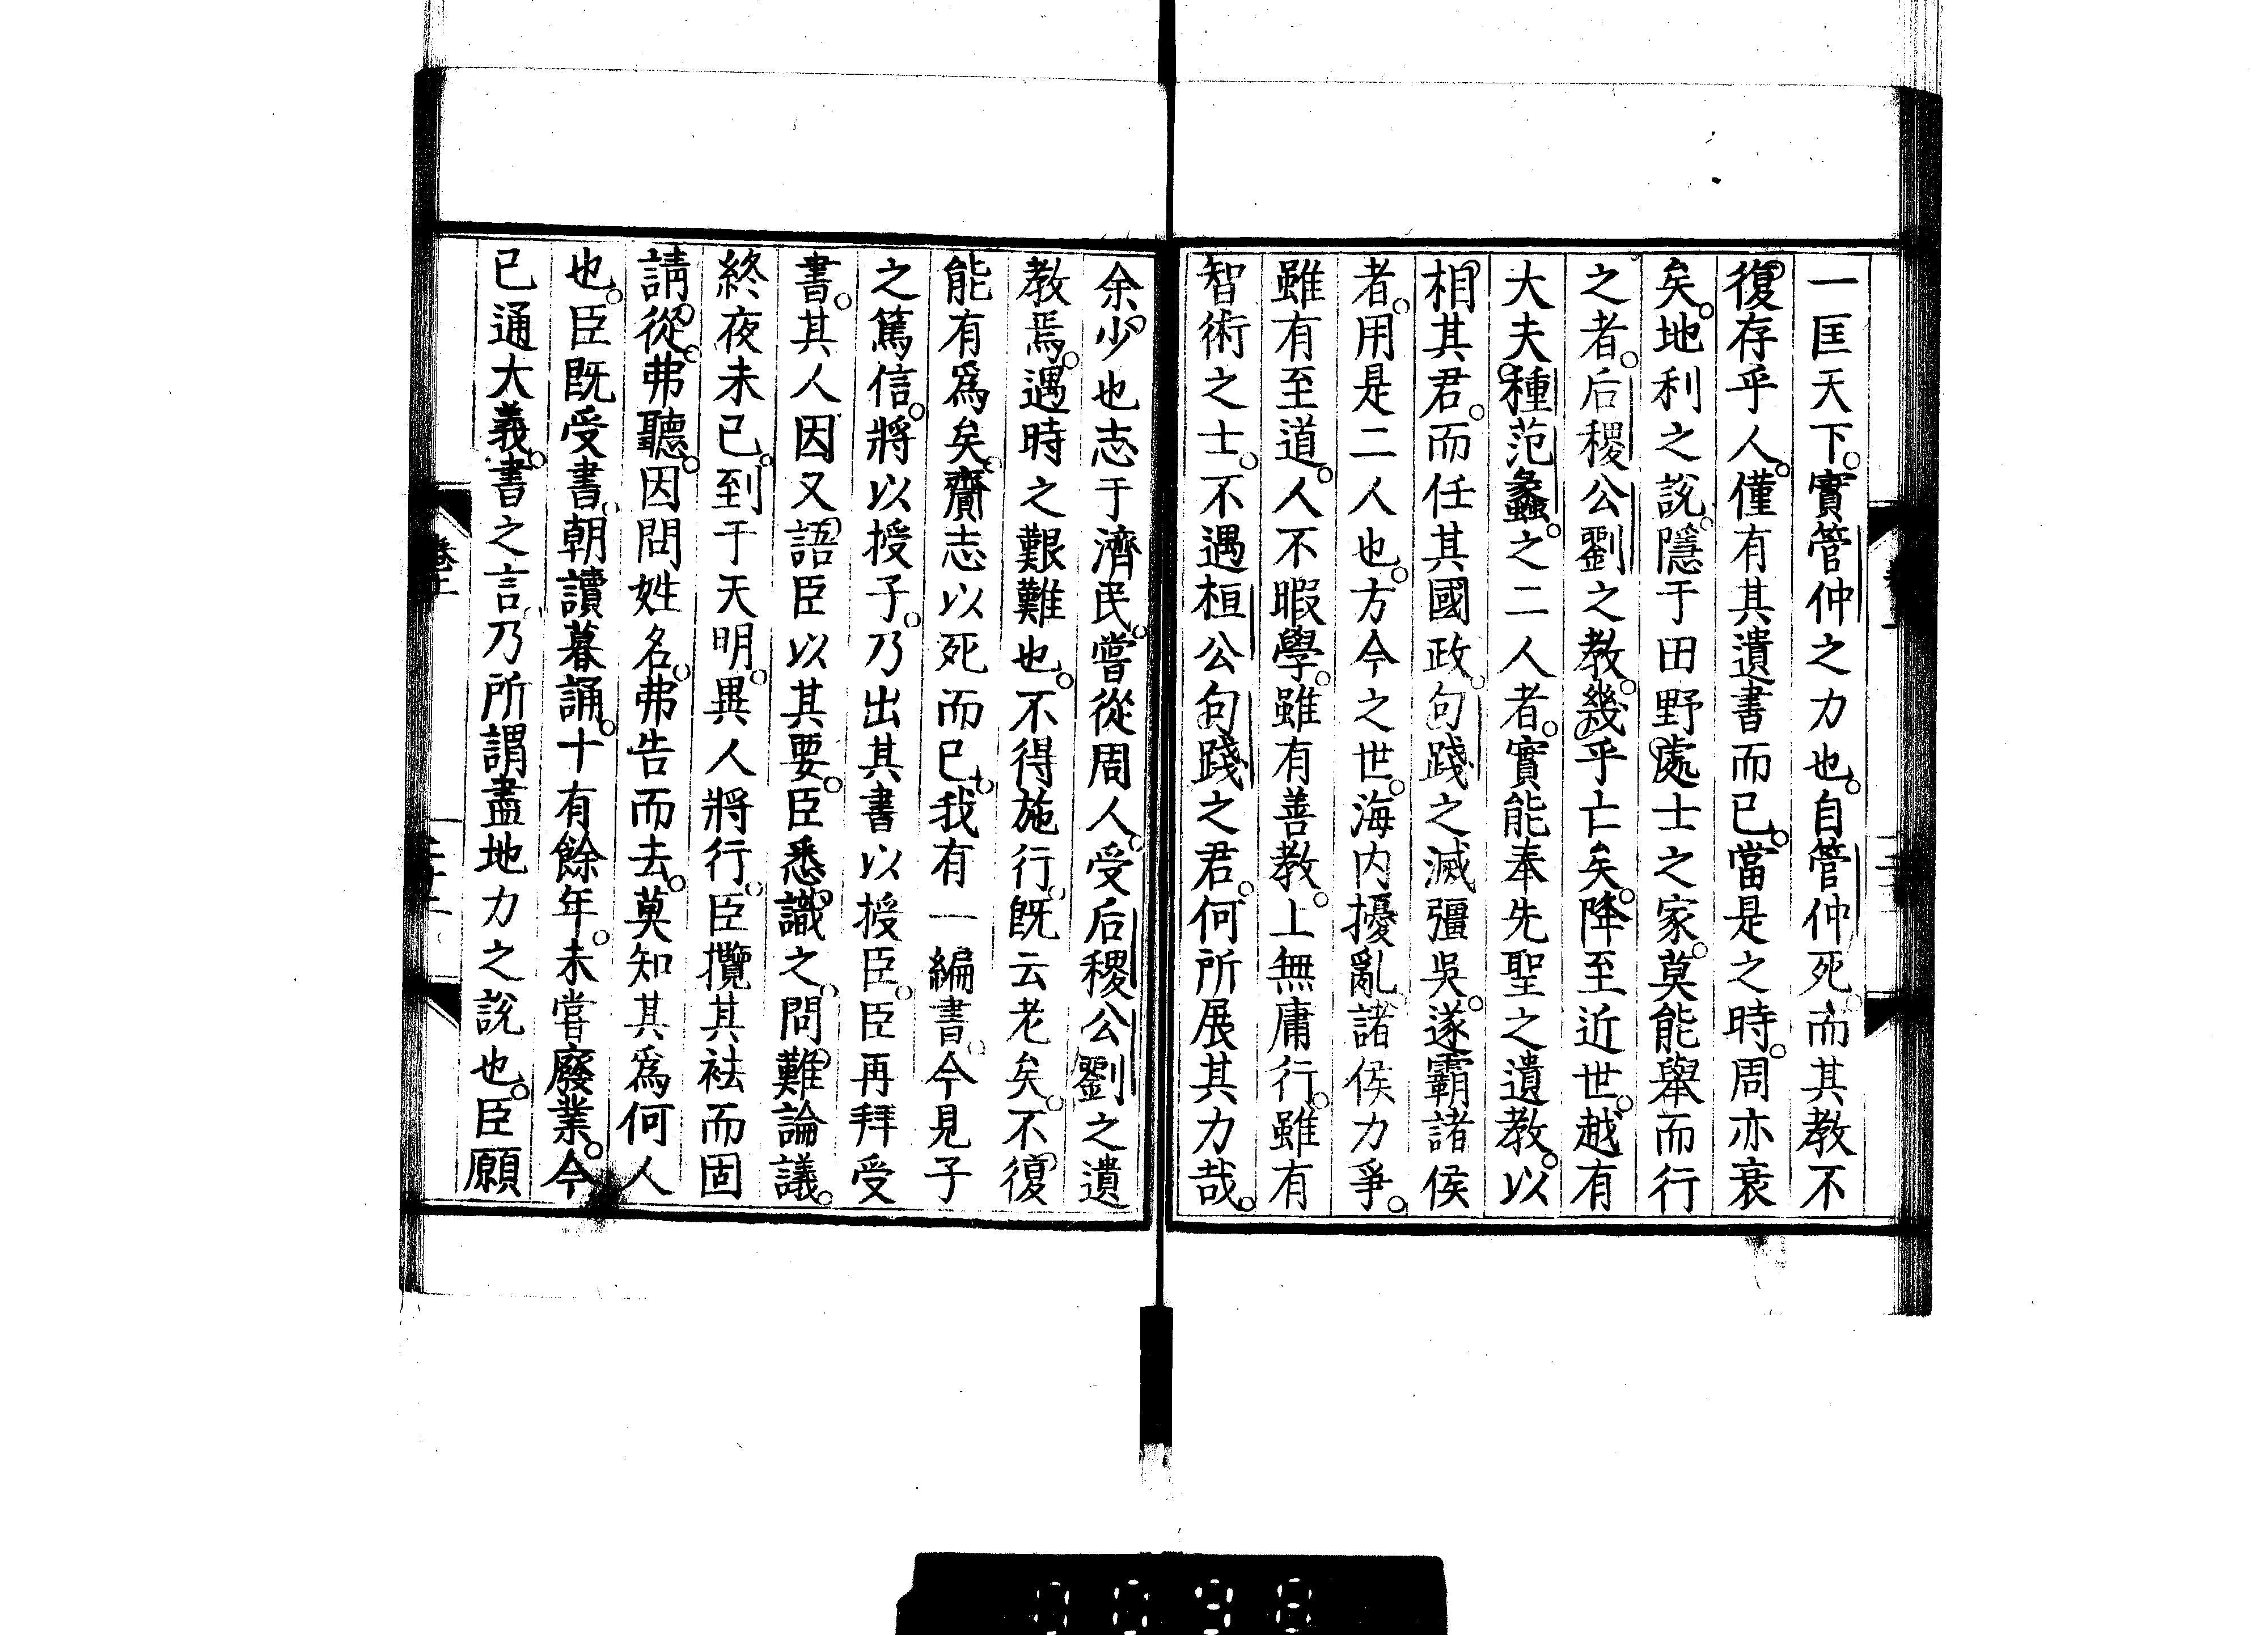 一匡天下。實管仲之力也。自管仲死。而其教不
復存乎人。僅有其遺書而已。當是之時。周亦衰
矣。地利之說。隱于田野處士之家。莫能舉而行
之者。后稷公劉之教。幾乎亡矣。降至近世。越有
大夫種范蠡。之二人者。實能奉先聖之遺教。以
相其君。而任其國政。句踐之滅彊吳。遂霸諸侯
者。用是二人也。方今之世。海内擾亂。諸侯力爭。
雖有至道。人不暇學。雖有善教。上無庸行。雖有
智術之士。不遇桓公句踐之君。何所展其力哉。
余少也志于濟民。嘗從周人。受后稷公劉之遺
教焉。遇時之艱難也。不得施行。既云老矣。不復
能有爲矣。齎志以死而已。我有一編書。今見子
之篤信。將以授子。乃出其書以授臣。臣再拜受
書。其人因又語臣以其要。臣悉識之。問難論議。
終夜未已。到于天明。異人將行。臣攬其袪而固
請從。弗聽。因問姓名。弗告而去。莫知其爲何人
也。臣既受書。朝讀暮誦。十有餘年。未嘗廢業。今
已通大義。書之言。乃所謂盡地力之說也。臣願
卷上